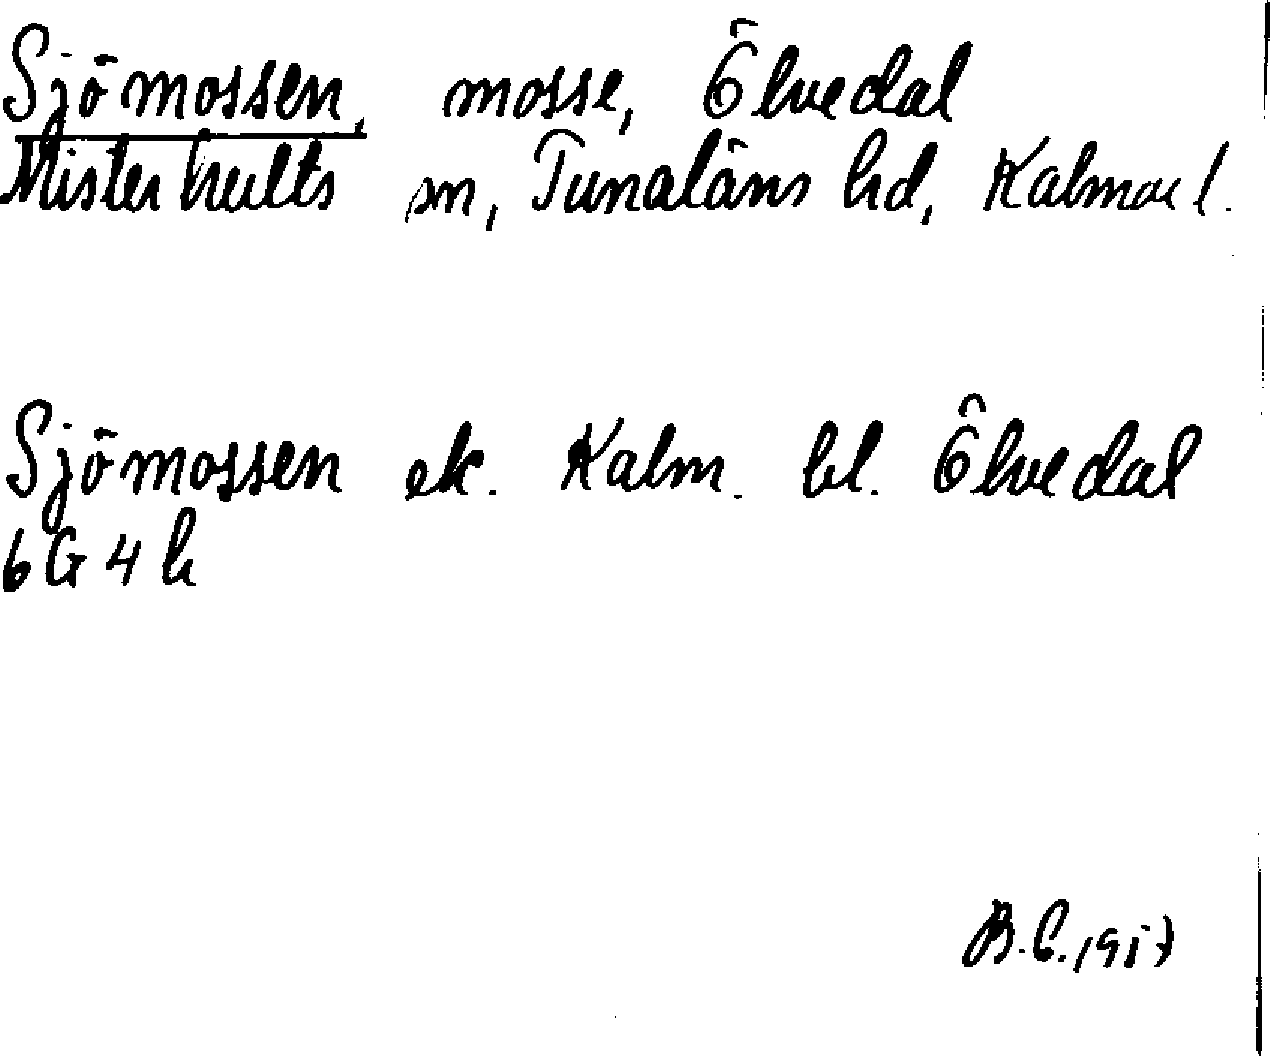 Sjömossen, mosse, Ölvedal
Misterhults sn, Tunaläns hd, Kalmar l.
Sjömossen ek. Kalm. bl. Ölvedal
6G4h
B.C. 1957